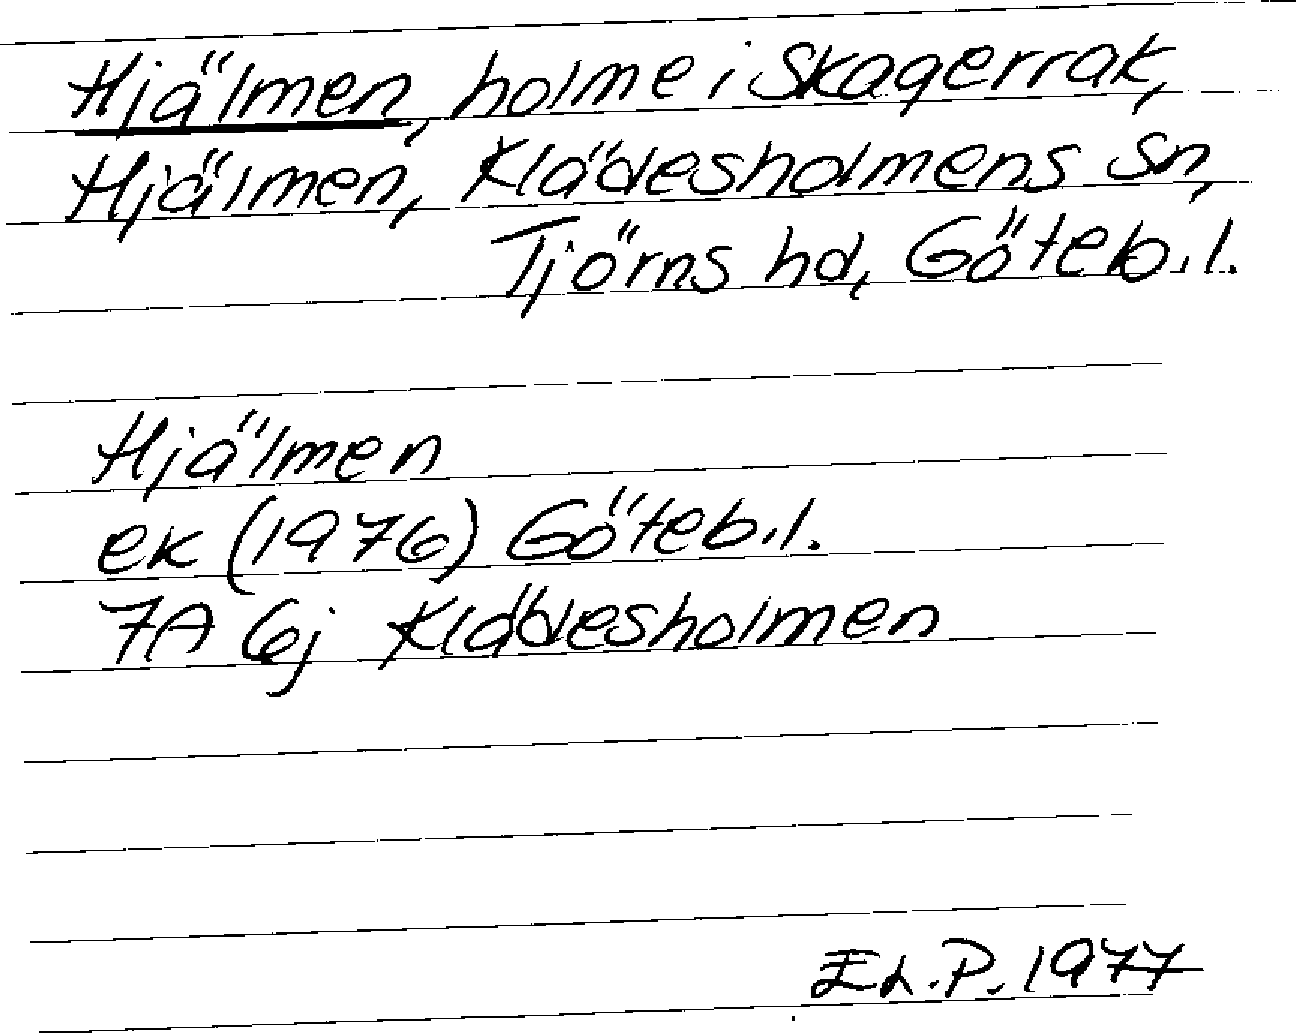 Hjälmen, holme i Skagerrak,
Hjälmen, Klädesholmens sn,
Tjörns hd, Göteb.l.
Hjälmen
ek (1976) Göteb.l.
7A 6j Klädesholmen
P. 1977